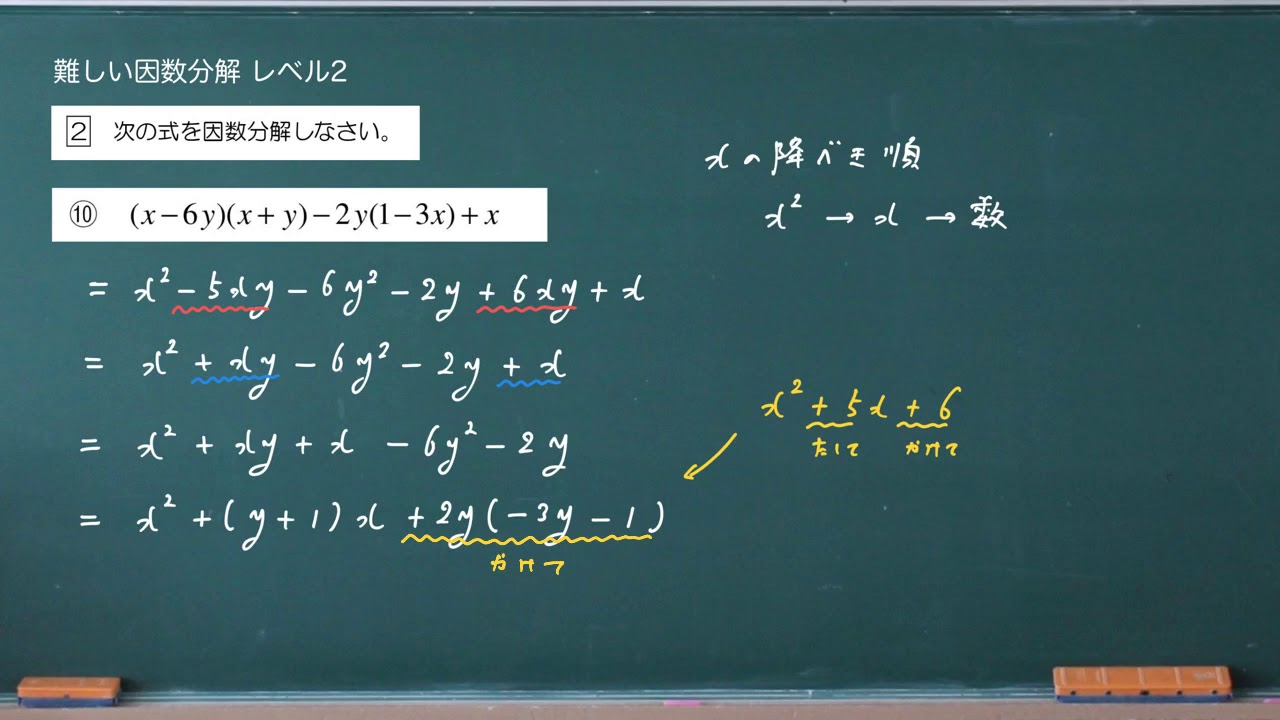 難しい因数分解 レベル2
2 次の式を因数分解しなさい。
⑩ (x−6y)(x+y)−2y(1−3x)+x
= x² − 5xy − 6y² − 2y + 6xy + x
= x² + xy − 6y² − 2y + x
= x² + xy + x − 6y² − 2y
= x² + (y+1)x + 2y(−3y−1)
かけて
xの降べき順
x² → x → 数
x² + 5x + 6
たして かけて